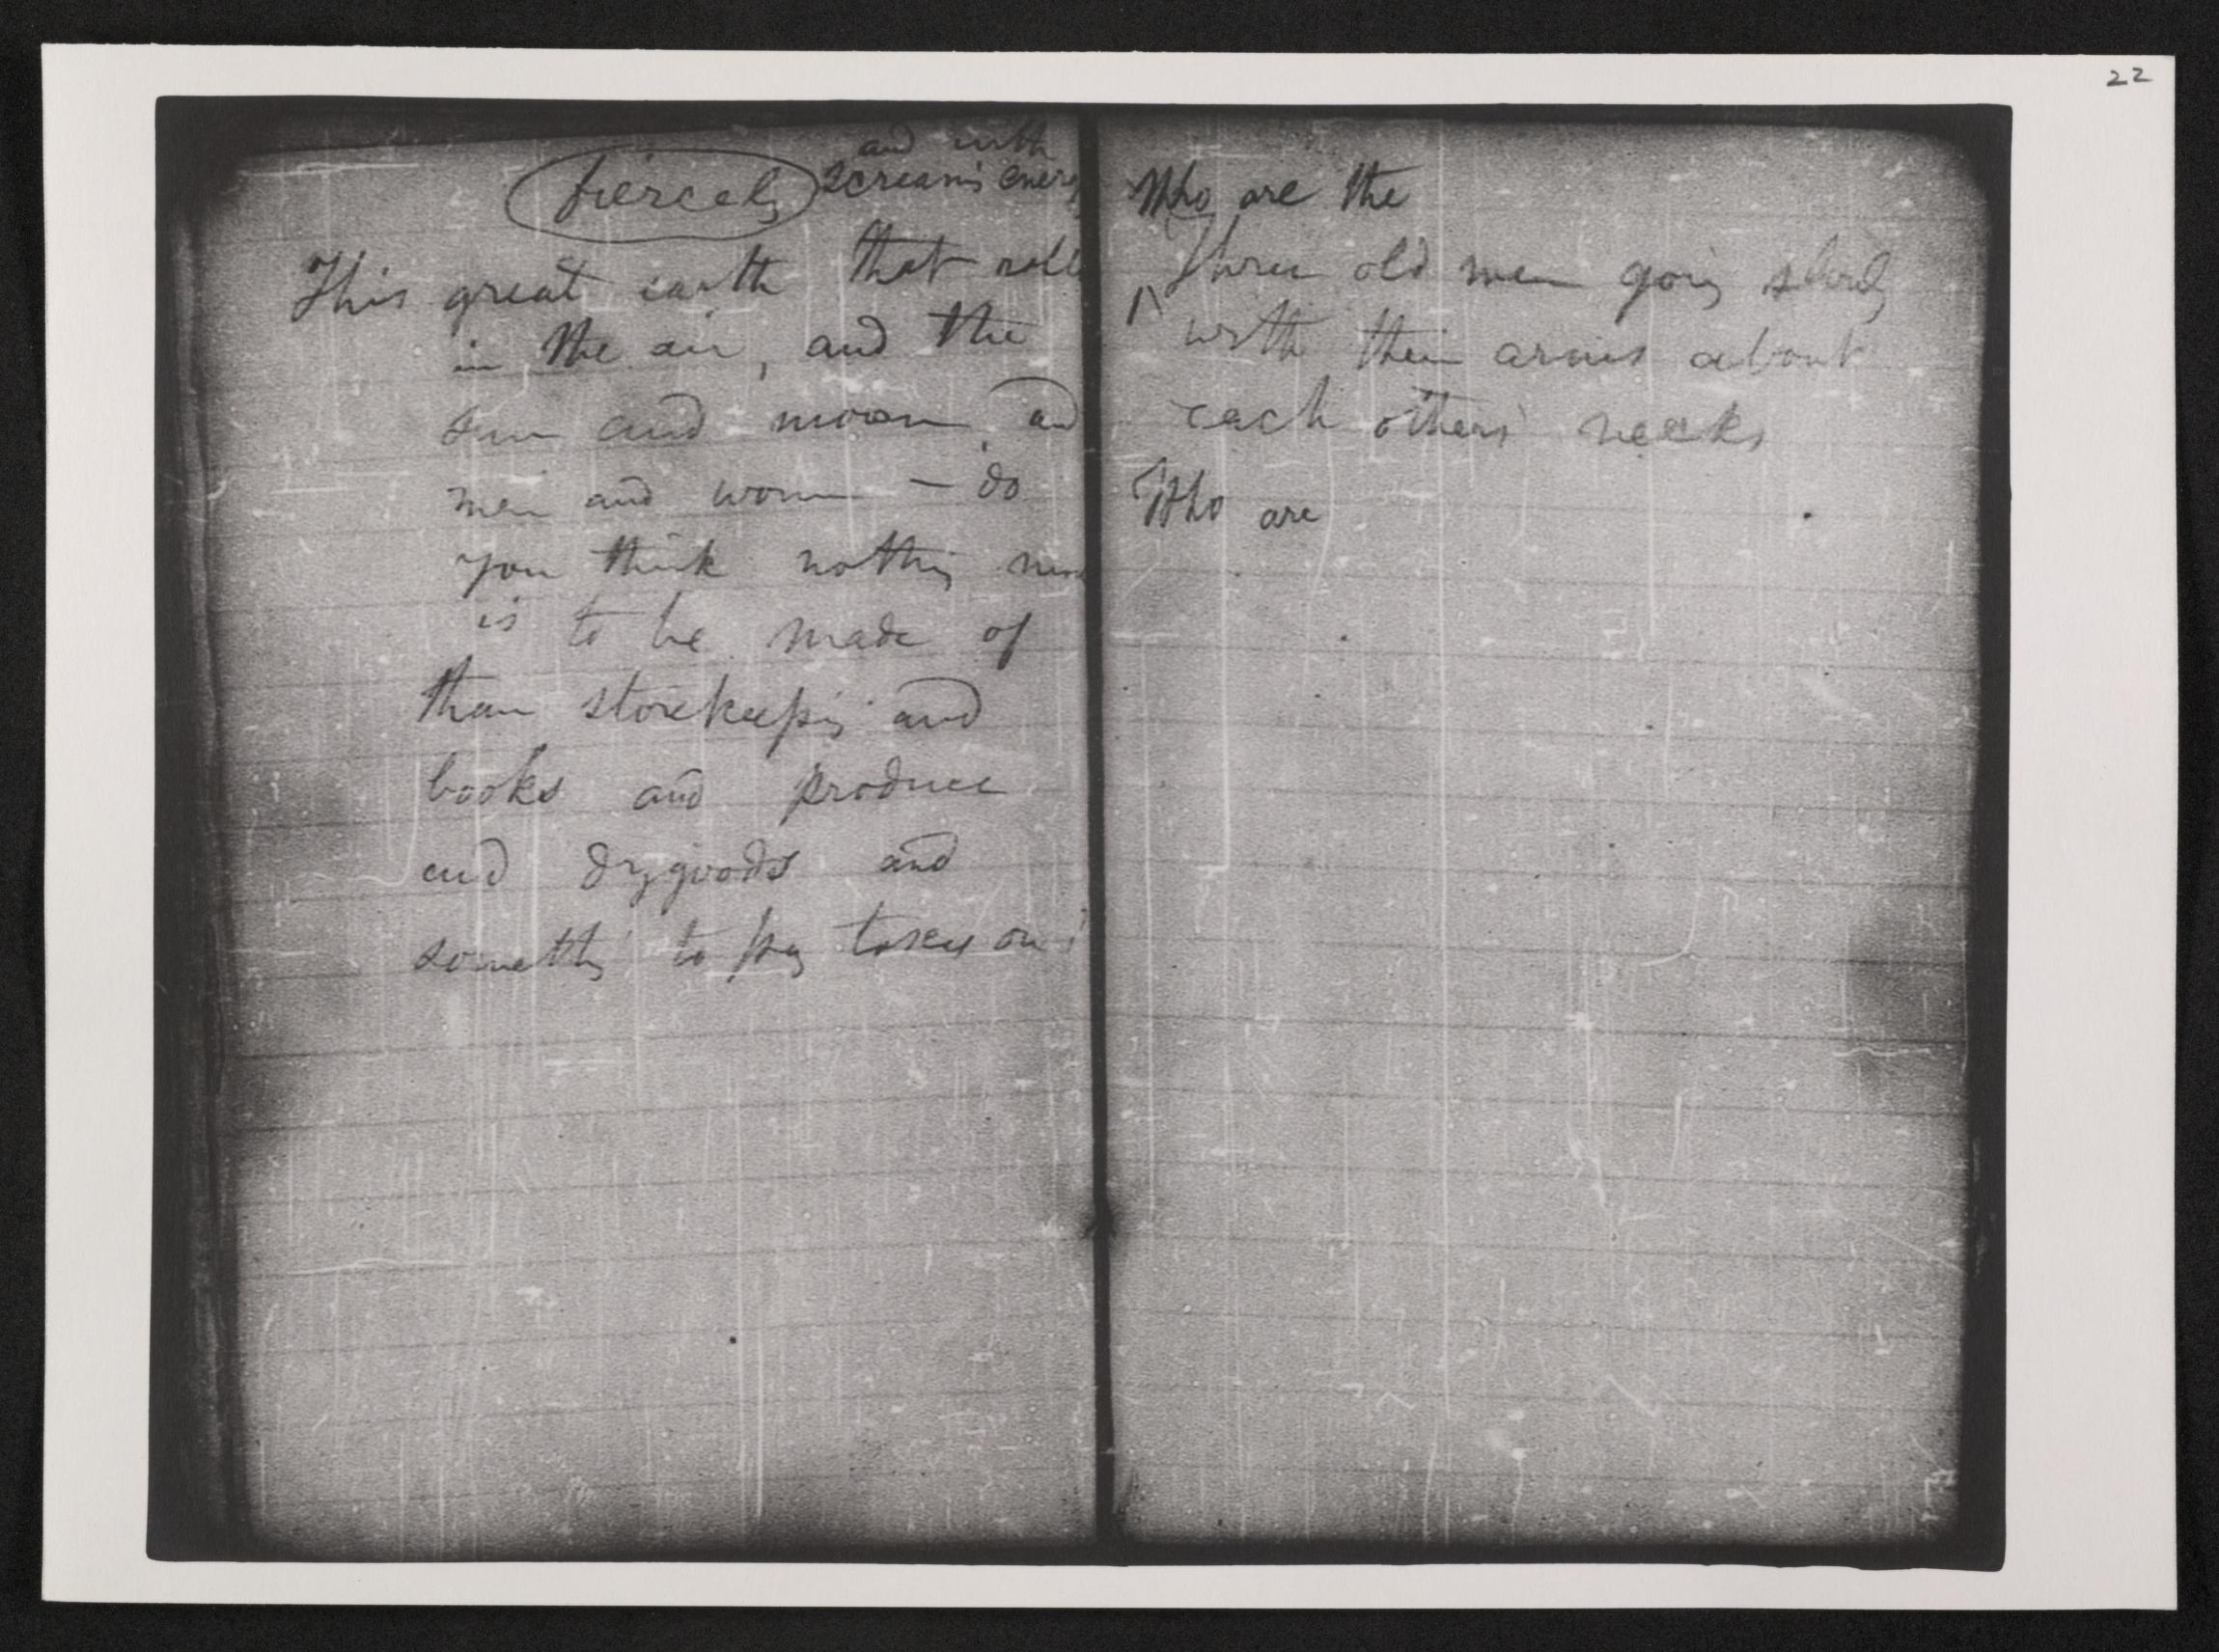 22
and with
(fiercely) screaming energy
This great earth that rolls
in the air, and the
sun and moon, and
men and women — do
you think nothing more
is to be made of
than storekeeping and
books and produce
and drygoods and
something to pay taxes on?
Who are the
^ Three old men going slowly
with their arms about
each others' necks
Who are